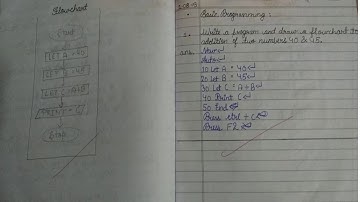 Flowchart
Start
LET A = 40
LET B = 45
LET C = A+B
PRINT C
Stop
Basic Programming :
1. Write a program and draw a flowchart to
addition of two numbers 40 & 45.
ans. New↵
Auto↵
10 Let A = 40↵
20 Let B = 45↵
30 Let C = A+B↵
40 Print C↵
50 End↵
Press ctrl + C↵
Press F2↵